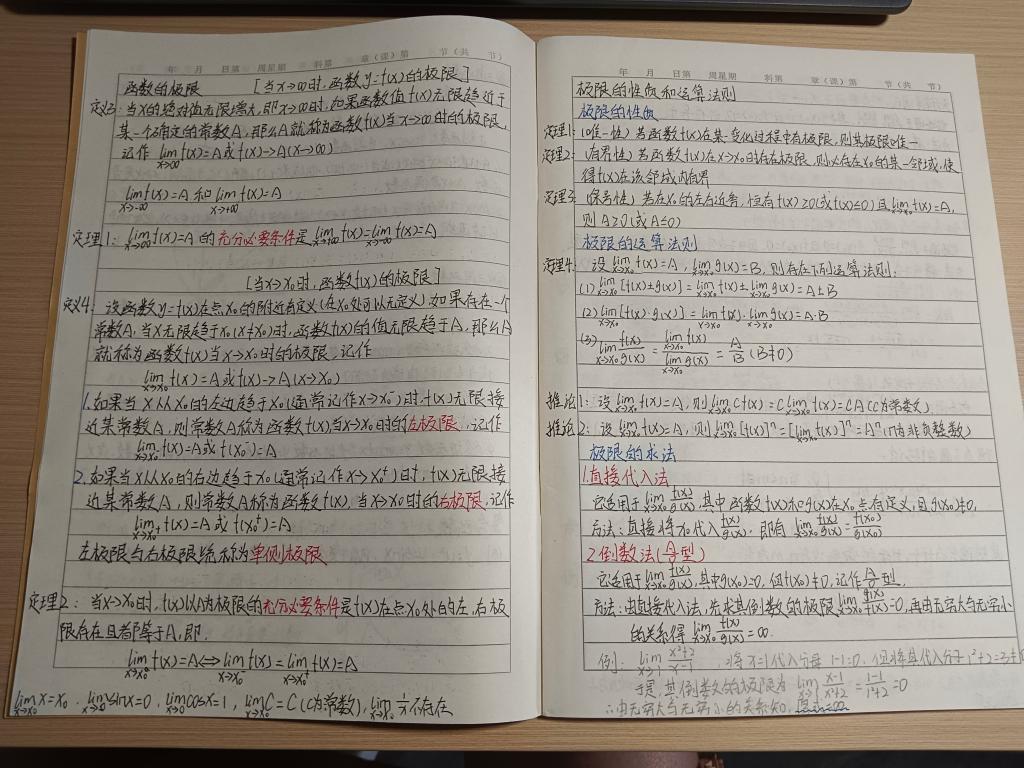 年 月 日第 周星期 科第 章(课)第 节(共 节)
函数的极限 [当x→∞时,函数y=f(x)的极限]
定义3:当x的绝对值无限增大,即x→∞时,如果函数值f(x)无限趋近于
某一个确定的常数A,那么A就称为函数f(x)当x→∞时的极限,
记作 lim(x→∞) f(x)=A或f(x)→A(x→∞)
lim(x→-∞) f(x)=A 和 lim(x→+∞) f(x)=A
定理1: lim(x→∞) f(x)=A 的充分必要条件是 lim(x→+∞) f(x)=lim(x→-∞) f(x)=A
[当x→x₀时,函数f(x)的极限]
定义4: 设函数y=f(x)在点x₀的附近有定义(在x₀处可以无定义).如果存在一个
常数A,当x无限趋于x₀(x≠x₀)时,函数f(x)的值无限趋于A,那么A
就称为函数f(x)当x→x₀时的极限.记作
lim(x→x₀) f(x)=A或f(x)→A(x→x₀)
1.如果当x从x₀的左边趋于x₀(通常记作x→x₀⁻)时,f(x)无限接
近某常数A,则常数A称为函数f(x)当x→x₀时的左极限,记作
lim(x→x₀⁻) f(x)=A或f(x₀⁻)=A
2.如果当x从x₀的右边趋于x₀(通常记作x→x₀⁺)时,f(x)无限接
近某常数A,则常数A称为函数f(x),当x→x₀时的右极限,记作
lim(x→x₀⁺) f(x)=A或f(x₀⁺)=A
左极限与右极限统称为单侧极限
定理2: 当x→x₀时,f(x)以A为极限的充分必要条件是f(x)在点x₀处的左、右极
限存在且都等于A,即.
lim(x→x₀) f(x)=A⇔lim(x→x₀⁻) f(x)=lim(x→x₀⁺) f(x)=A
lim(x→x₀) x=x₀. lim(x→0) sinx=0, lim(x→0) cosx=1, lim(x→x₀) C=C(C为常数), 不存在
年 月 日第 周星期 科第 章(课)第 节(共 节)
极限的性质和运算法则
极限的性质
定理1:(唯一性)若函数f(x)在某一变化过程中有极限,则其极限唯一
定理2:(有界性)若函数f(x)在x→x₀时存在极限,则必存在x₀的某一邻域,使
得f(x)在该邻域内有界
定理3 (保号性)若在x₀的左右近旁,恒有f(x)≥0(或f(x)≤0)且lim(x→x₀) f(x)=A,
则A≥0(或A≤0)
极限的运算法则
定理4: 设lim(x→x₀) f(x)=A, lim(x→x₀) g(x)=B, 则存在下列运算法则.
(1) lim(x→x₀) [f(x)±g(x)]=lim(x→x₀) f(x)±lim(x→x₀) g(x)=A±B
(2) lim(x→x₀) [f(x)·g(x)]=lim(x→x₀) f(x)·lim(x→x₀) g(x)=A·B
(3) lim(x→x₀) f(x)/g(x) = lim(x→x₀) f(x)/lim(x→x₀) g(x) = A/B (B≠0)
推论1: 设lim(x→x₀) f(x)=A, 则lim(x→x₀) Cf(x)=C lim(x→x₀) f(x)=CA(C为常数).
推论2: 设lim(x→x₀) f(x)=A, 则lim(x→x₀) [f(x)]ⁿ=[lim(x→x₀) f(x)]ⁿ=Aⁿ(n为非负整数)
极限的求法
1.直接代入法
它适用于lim(x→x₀) f(x)/g(x),其中函数f(x)和g(x)在x₀点有定义,且g(x₀)≠0,
方法:直接将x₀代入f(x)/g(x), 即有 lim(x→x₀) f(x)/g(x)=f(x₀)/g(x₀)
2.倒数法(A/0型)
它适用于lim(x→x₀) f(x)/g(x),其中g(x₀)=0,但f(x₀)≠0,记作A/0型.
方法:由直接代入法,先求其倒数的极限lim(x→x₀) g(x)/f(x)=0,再由无穷大与无穷小
的关系得 lim(x→x₀) f(x)/g(x)=∞.
例: lim(x→1) (x²+2)/(x-1) . 将x=1代入分母 1-1=0, 但将其代入分子1²+2=3≠0
于是,其倒数的极限为 lim(x→1) (x-1)/(x²+2)=(1-1)/(1²+2)=0
∴由无穷大与无穷小的关系知,原=∞